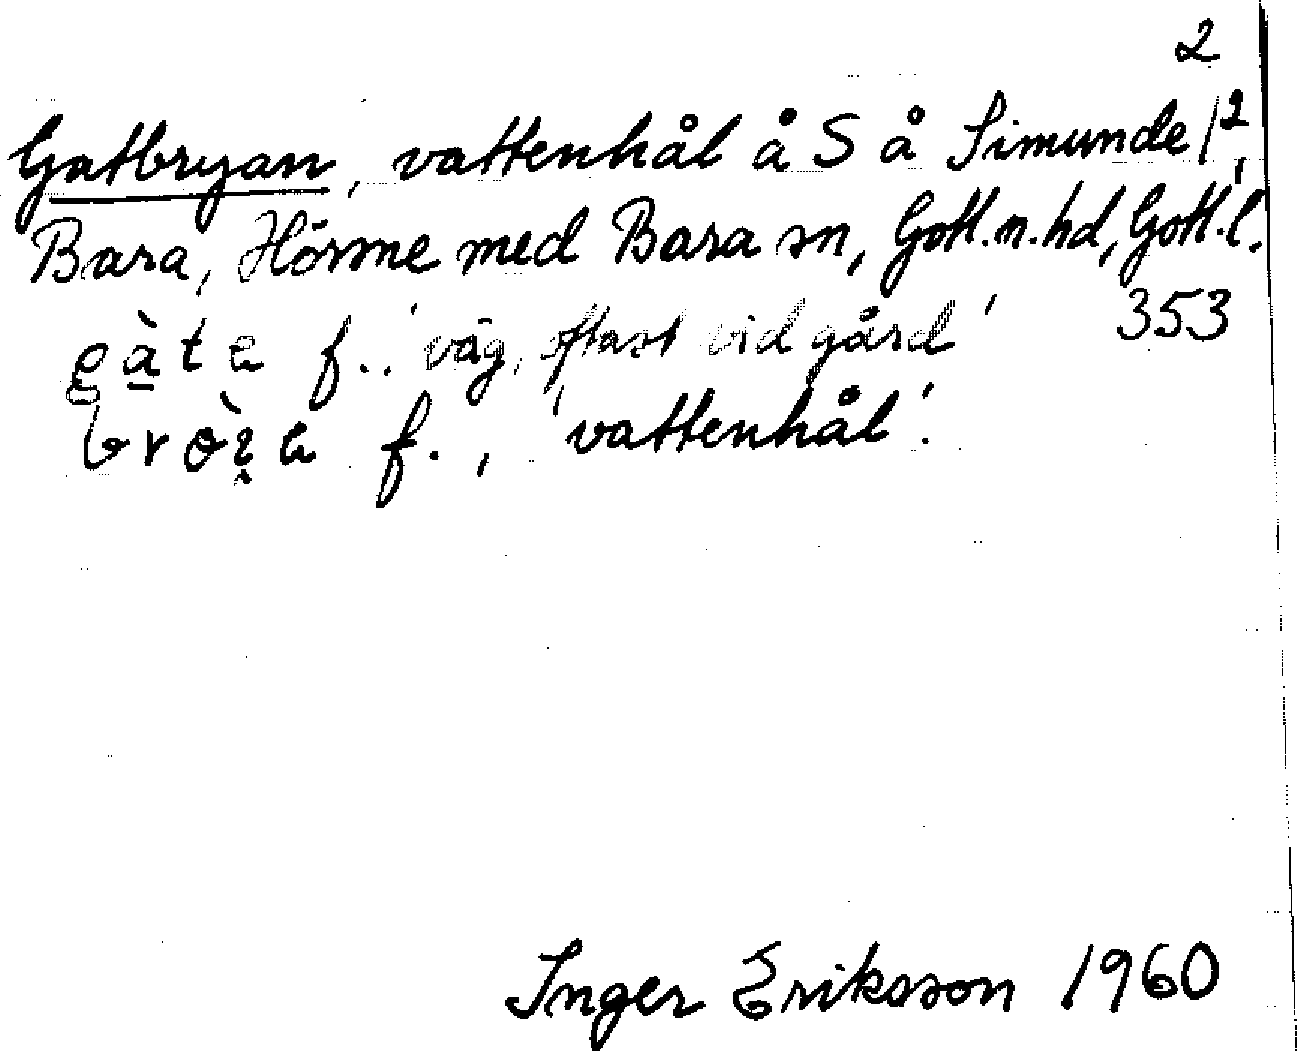 2
Gatbryan, vattenhål å S å Simunde 1²,
Bara, Hörsne med Bara sn, Gotl.n.hd, Gotl.l.
gàta f., 'väg, oftast vid gård' 353
f., 'vattenhål'.
Inger Eriksson 1960